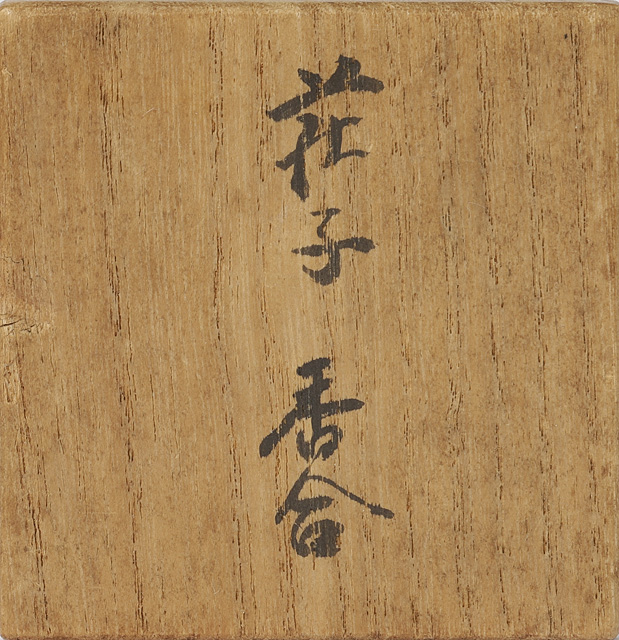 荘子 香合